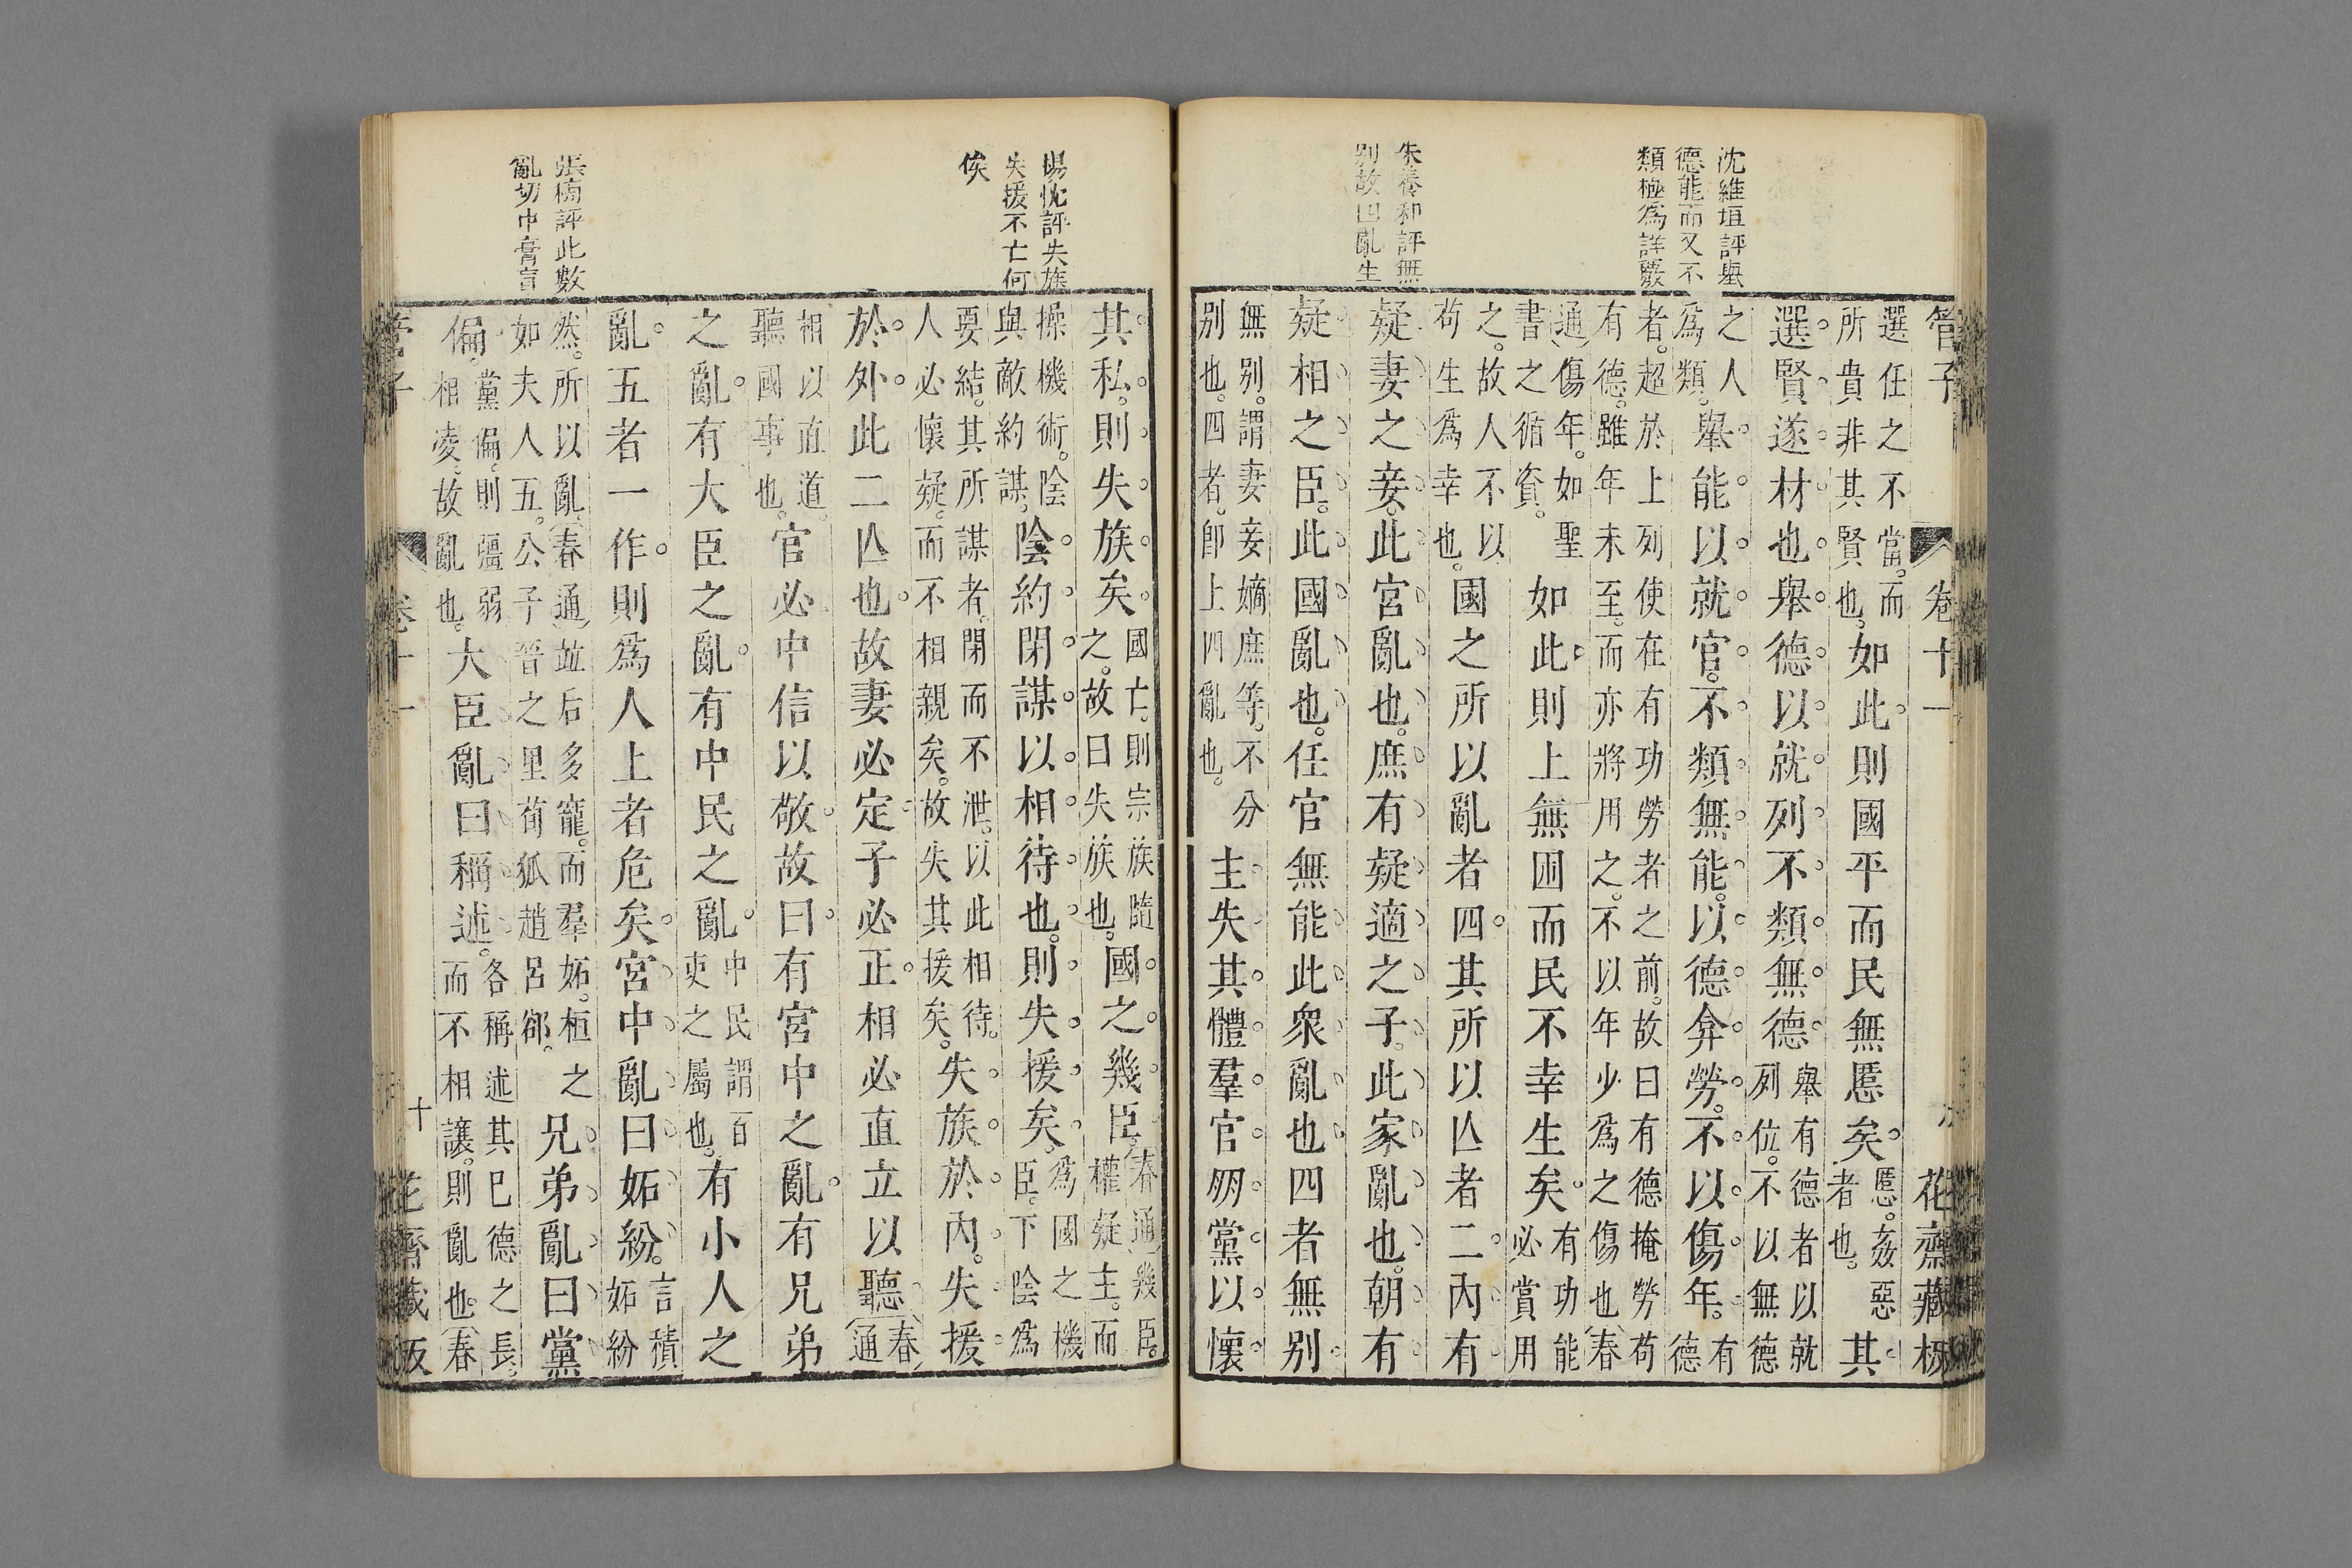 沈維垣評舉
德能而又不
類極爲詳覈
朱養和評無
别故四亂生
管子
卷十一
花齋藏板
選任之不當。而
所貴非其賢也。如此。則國平而民無慝矣。慝。姦惡
者也。其
選賢遂材也。舉德以就列。不類無德舉有德者以就
列位。不以無德
之人
爲類。舉能以就官。不類無能。以德弇勞。不以傷年。有
德
者。超於上列使在有功勞者之前。故曰有德掩勞苟
有德。雖年未至。而亦將用之。不以年少爲之傷也(春
通)傷年。如聖
書之循資。如此則上無困而民不幸生矣。有功能
必賞用
之。故人不以
苟生爲幸也。國之所以亂者四。其所以亾者二。內有
疑妻之妾。此宮亂也。庶有疑適之子。此家亂也。朝有
疑相之臣。此國亂也。任官無能此衆亂也四者無别。
無别。謂妻妾嫡庶等。不分
别也。四者。卽上四亂也。主失其體。羣官朋黨。以懷
楊忱評失族
失援不亡何
俟
張榜評此數
亂切中膏肓
其私。則失族矣。國亡。則宗族隨
之。故曰失族也。國之幾臣(春通)幾臣。
權疑主。而
操機術。陰
與敵約謀。陰約閉謀以相待也。則失援矣。爲國之機
臣。下陰爲
要結。其所謀者。閉而不泄。以此相待。
人必懷疑。而不相親矣。故失其援矣。失族於內。失援
於外。此二亾也。故妻必定子必正。相必直立以聽(春
通)
相以直道。
聽國事也。官必中信以敬。故曰有宮中之亂。有兄弟
之亂。有大臣之亂。有中民之亂。中民謂百
吏之屬也。有小人之
亂。五者一作。則爲人上者危矣。宮中亂曰妬紛。言積
妬紛
然。所以亂。(春通)竝后多寵。而羣妬。桓之
如夫人五。公子晉之里荀狐趙呂郤。兄弟亂曰黨
偏。黨偏。則彊弱
相凌。故亂也。大臣亂曰稱述。各稱述其已德之長。
而不相讓。則亂也。(春
管子
卷十一
十
花齋藏板